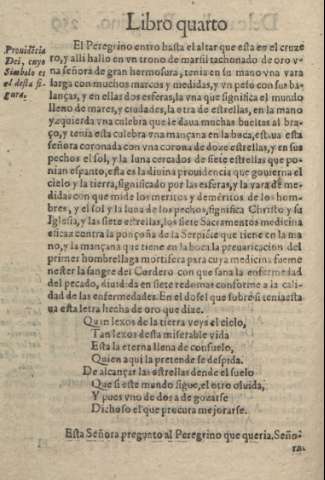 Libro quarto
Prouidẽcia
Dei, cuyo
Simbolo es
el desta fi-
gura.
El Peregrino entro hasta el altar que esta en el cruze
ro, y alli hallo en vn trono de marfil tachonado de oro v
na señora de gran hermosura, tenia en su mano vna vara
larga con muchos marcos y medidas, y vn peso con sus ba-
lanças, y en ellas dos esferas, la vna que significa el mundo
lleno de mares, y ciudades, la otra de estrellas, en la mano
yzquierda vna culebra que le daua muchas bueltas al bra-
ço, y tenia esta culebra vna mançana en la boca, estaua esta
señora coronada con vna corona de doze estrellas, y en sus
pechos el sol, y la luna cercados de siete estrellas que po-
nian espanto, esta es la diuina prouidencia que gouierna el
cielo y la tierra, significado por las esferas, y la vara de me-
didas con que mide los meritos y demeritos de los hom-
bres, y el sol y la luna de los pechos, significa Christo y su
Iglesia, y las siete estrellas, los siete Sacramentos medicina
eficaz contra la ponçoña de la Serpiẽte que tiene en la ma-
no, y la mançana que tiene en la boca la preuaricacion del
primer hombre llaga mortifera para cuya medicina fue me
nester la sangre del Cordero con que sana la enfermedad
del pecado, diuidida en siete redomas conforme a la cali-
dad de las enfermedades. En el dosel que sobre si tenia esta
ua esta letra hecha de oro que dize.
Quan lexos de la tierra veys el cielo,
Tan lexos desta miserable vida
Esta la eterna llena de consuelo,
Quien aqui la pretende se despida.
De alcançar las estrellas dende el suelo
Que si este mundo sigue, el otro oluida,
Y pues vno de dos a de gozarse
Dichoso el que procura mejorarse.
Esta Señora pregunto al Peregrino que queria, Seño-
ra